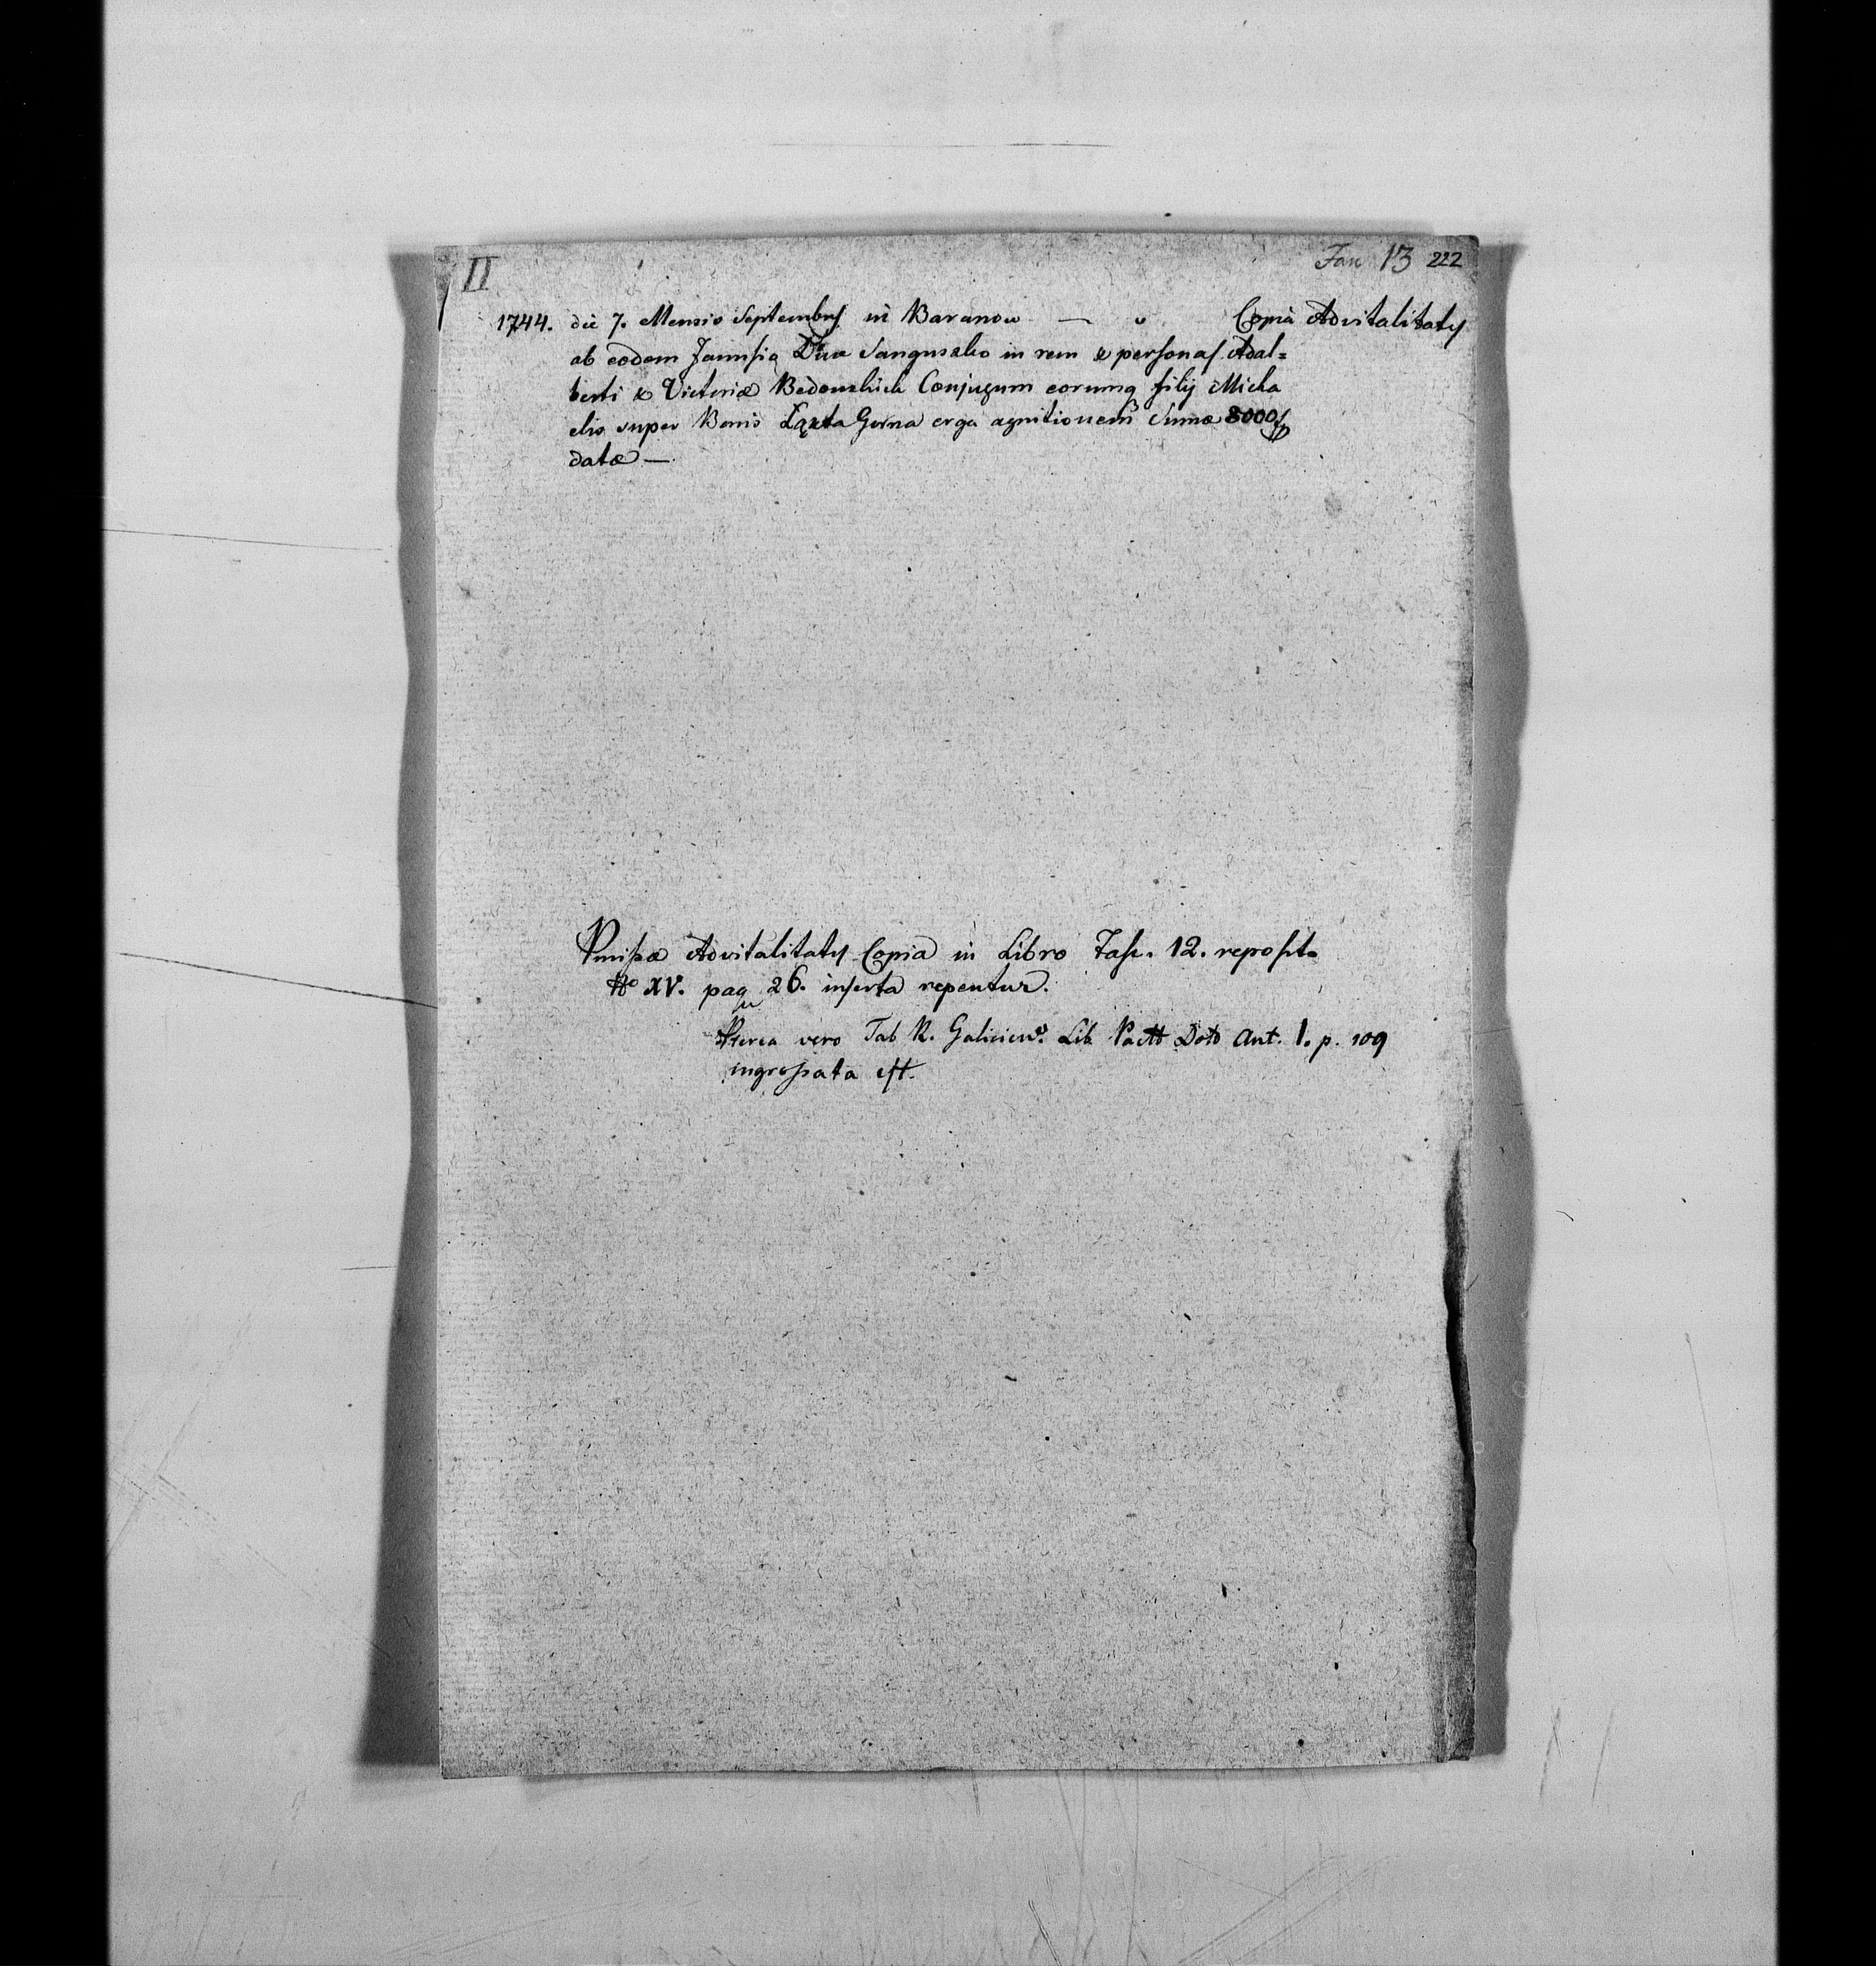 II
Fasc 13 222
1744. die 7. Mensis Septembris in Baranow — " Copia Advitalitatis
ab eodem Janusio Duce Sangusko in rem & personas Adal=
berti & Victoriæ Conjugum eorumq filij Micha
elis super Bonis Łąkta Gorna erga agnitionem Sumæ 8000 fp
datæ —
Pmissæ Advitalitatis Copia in Libro Fasc. 12. reposit.
No XV. pag 26. inserta reperitur.
Pterea vero Tab R. Galicien. Lib Pactt Dott Ant. 1. p. 109
ingrossata est.